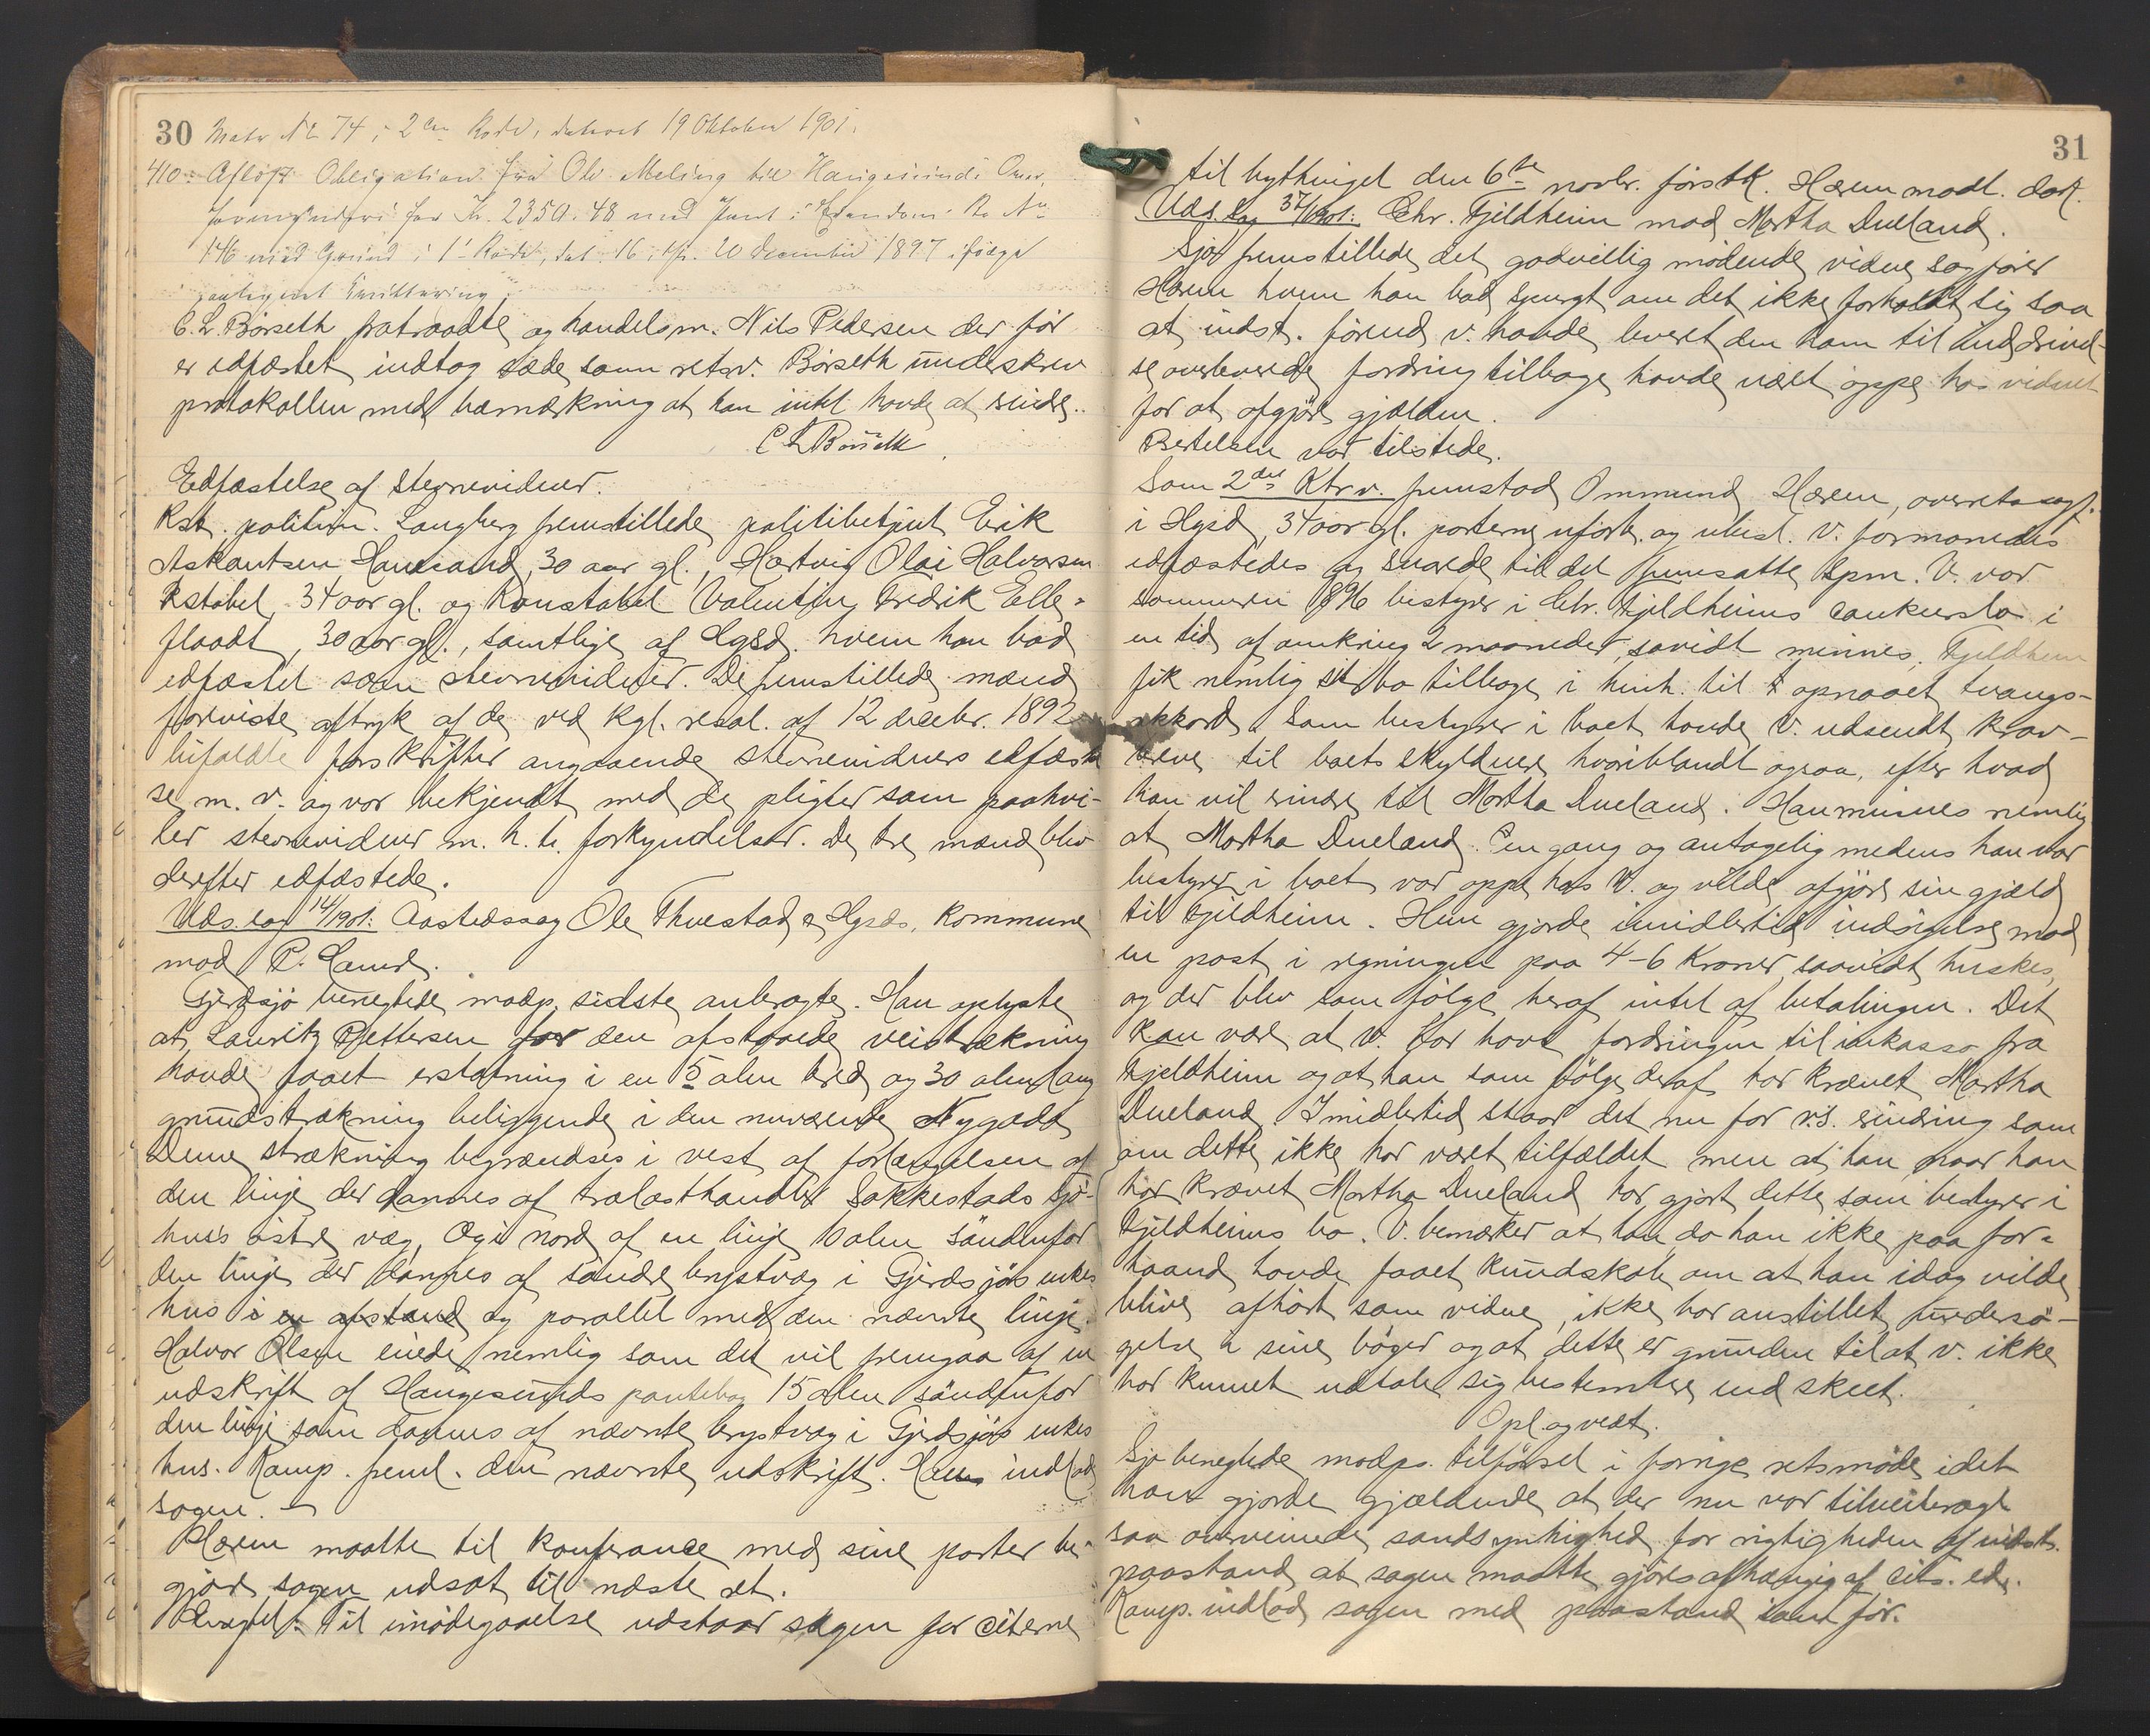 30 Matr No 74 i 2den Rode, dateret 19 Oktober 1901.
410. Aflöst Obligation fra Ole Meling til Haugesunds Over-
formynderi for Kr. 2350.48 med Pant i Eiendom. Ro No
146 med Grund i 1' Rode, dat. 16, 20 December 1897 ifölge
paategnet Kvittering.
C. L. Börseth fratraadte og handelsm. Nils Pedersen der för
er edfæstet indtog sæde som retsv. Börseth underskrev
protokollen med bemærkning at han intet havde at erindre.
C L Börseth
Edfæstelse af stevnevidner.
Kst. politim. Langberg fremstillede politibetjent Erik
Askautsen 30 aar gl., Hartvig Olai Halvorsen
Kstabel, 34 aar gl. og Konstabel Valentin Fredrik Elle-
flaadt, 30 aar gl., samtlige af Hgsd. hvem han bad
edfæstet som stevnevidner. De fremstillede mænd
foreviste aftryk af de ved kgl. resol. af 12 decbr. 1892
bifaldte forskrifter angaaende stevnevidners edfæstel
se m. v. og var bekjendt med de pligter som paahvi-
ler stevnevidner m. h. t. forkyndelser. De tre mænd blev
derefter edfæstede.
Uds. sag 14/1901: Aastedssag Ole Thuestad & Hgsds. Kommune
mod P. Lund.
Gjerdsjö benegtede modp. sidste anbragte. Han oplyste
at Lauritz Pettersen for den afstaaede veistrækning
havde faaet erstatning i en 5 alen bred og 30 alen lang
grundstrækning beliggende i den nuværende Nygade
Denne strækning begrændses i vest af forlængelsen af
den linje der dannes af trælasthandler Sakkestads sjö-
hus's östre væg, og i nord af en linje 10 alen söndenfor
den linje der dannes af söndre brystvæg i Gjerdsjös enkes
hus i en afstand og parallel med den nævnte linje.
Halvor Olsen eiede nemlig som det vil fremgaa af en
udskrift af Haugesunds pantebog 15 alen söndenfor
den linje som dannes af nævnte brystvæg i Gjerdsjös enkes
hus. Komp. freml. den nævnte udskrift. indlod
sagen.
Hærem maatte til konferance med sine parter be-
gjære sagen udsat til næste ret.
Til imödegaaelse udstaar sagen for citerne
31
til bythinget den 6te novbr. förstk. Hærem modt. dok.
Uds. sag 37/1901: Chr. Fjeldheim mod Martha Dueland.
Sjo fremstillede det godvillig mödende vidne sagförer
Hærem hvem han bad spurgt om det ikke forholdt sig saa
at indst. förend v. havde leveret den ham til inddrivel-
se overleverede fordring tilbage havde været oppe hos vidnet
for at afgjöre gjælden.
Bertelsen var tilstede.
Som 2det Ktrv. fremstod Ommund Hærem, overretssagf.
i Hgsd, 34 aar gl. parterne uforb. og ubesl. V. formanedes
edfæstedes og svarede til det fremsatte spm. V. var
sommeren 1896 bestyrer i Chr. Fjeldheims concursbo i
en tid af omkring 2 maaneder, savidt mindes. Fjeldheim
fik nemlig sit bo tilbage i henh. til opnaaet tvangs-
akkord. Som bestyrer i boet havde V. udsendt krav-
breve til boets skyldnere hvoriblandt ogsaa, efter hvad
han vil erindre til Martha Dueland. Han mindes nemlig
at Martha Dueland. Engang og antagelig medens han var
bestyrer i boet var oppe hos V. og vilde afgjöre sin gjæld
til Fjeldheim. Hun gjorde imidlertid indsigelse mod
en post i regningen paa 4-6 kroner, saavidt huskes,
og der blev som fölge heraf intet af betalingen. Det
kan være at V. har havt fordringen til inkasso fra
Fjeldheim og at han som fölge deraf har krævet Martha
Dueland. Imidlertid staar det nu for v.s. erindring som
om dette ikke har været tilfældet men at han naar han
har krævet Martha Dueland har gjort dette som bestyrer i
Fjeldheims bo. V. bemærker at han da han ikke paa for-
haand havde faaet kundskab om at han idag vilde
blive afhört som vidne, ikke har anstillet undersö-
gelse i sine böger og at dette er grunden til at v. ikke
har kunnet udtale sig bestemtere end skeet.
Opl. og vedt.
Sjo benegtede modps. tilförsel i forrige retsmöde idet
han gjorde gjældende at der nu var tilveiebragt
saa overveiende sandsynlighed for rigtigheden af indst.
paastand at sagen maatte gjöres afhængig af cits. ed.
Komp. indlod sagen med paastand som för.